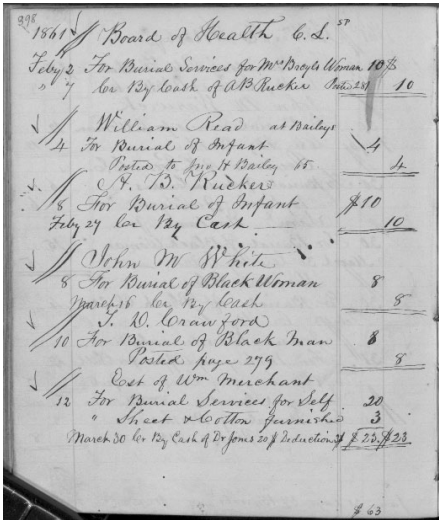 298
1861 Board of Health C. L.
Feby 2 For Burial Services for Mrs Woman 10 $
" 7 Cr By Cash of A B Rucker 281 10
William Read at Baileys
4 For Burial of Infant 4
Posted to Jno H Bailey 65 4
A. B. Rucker
8 For Burial of Infant $10
Feby 27 Cr By Cash 10
John M White
8 For Burial of Black Woman 8
March 16 Cr By Cash 8
D. Crawford
10 For Burial of Black Man 8
Posted page 279 8
Est of Wm Merchant
12 For Burial Services for Self 20
" Sheet & Cotton furnished 3
March 30 Cr By Cash of Dr Jones 20 $ Deduction 3$ $23. $23
$63